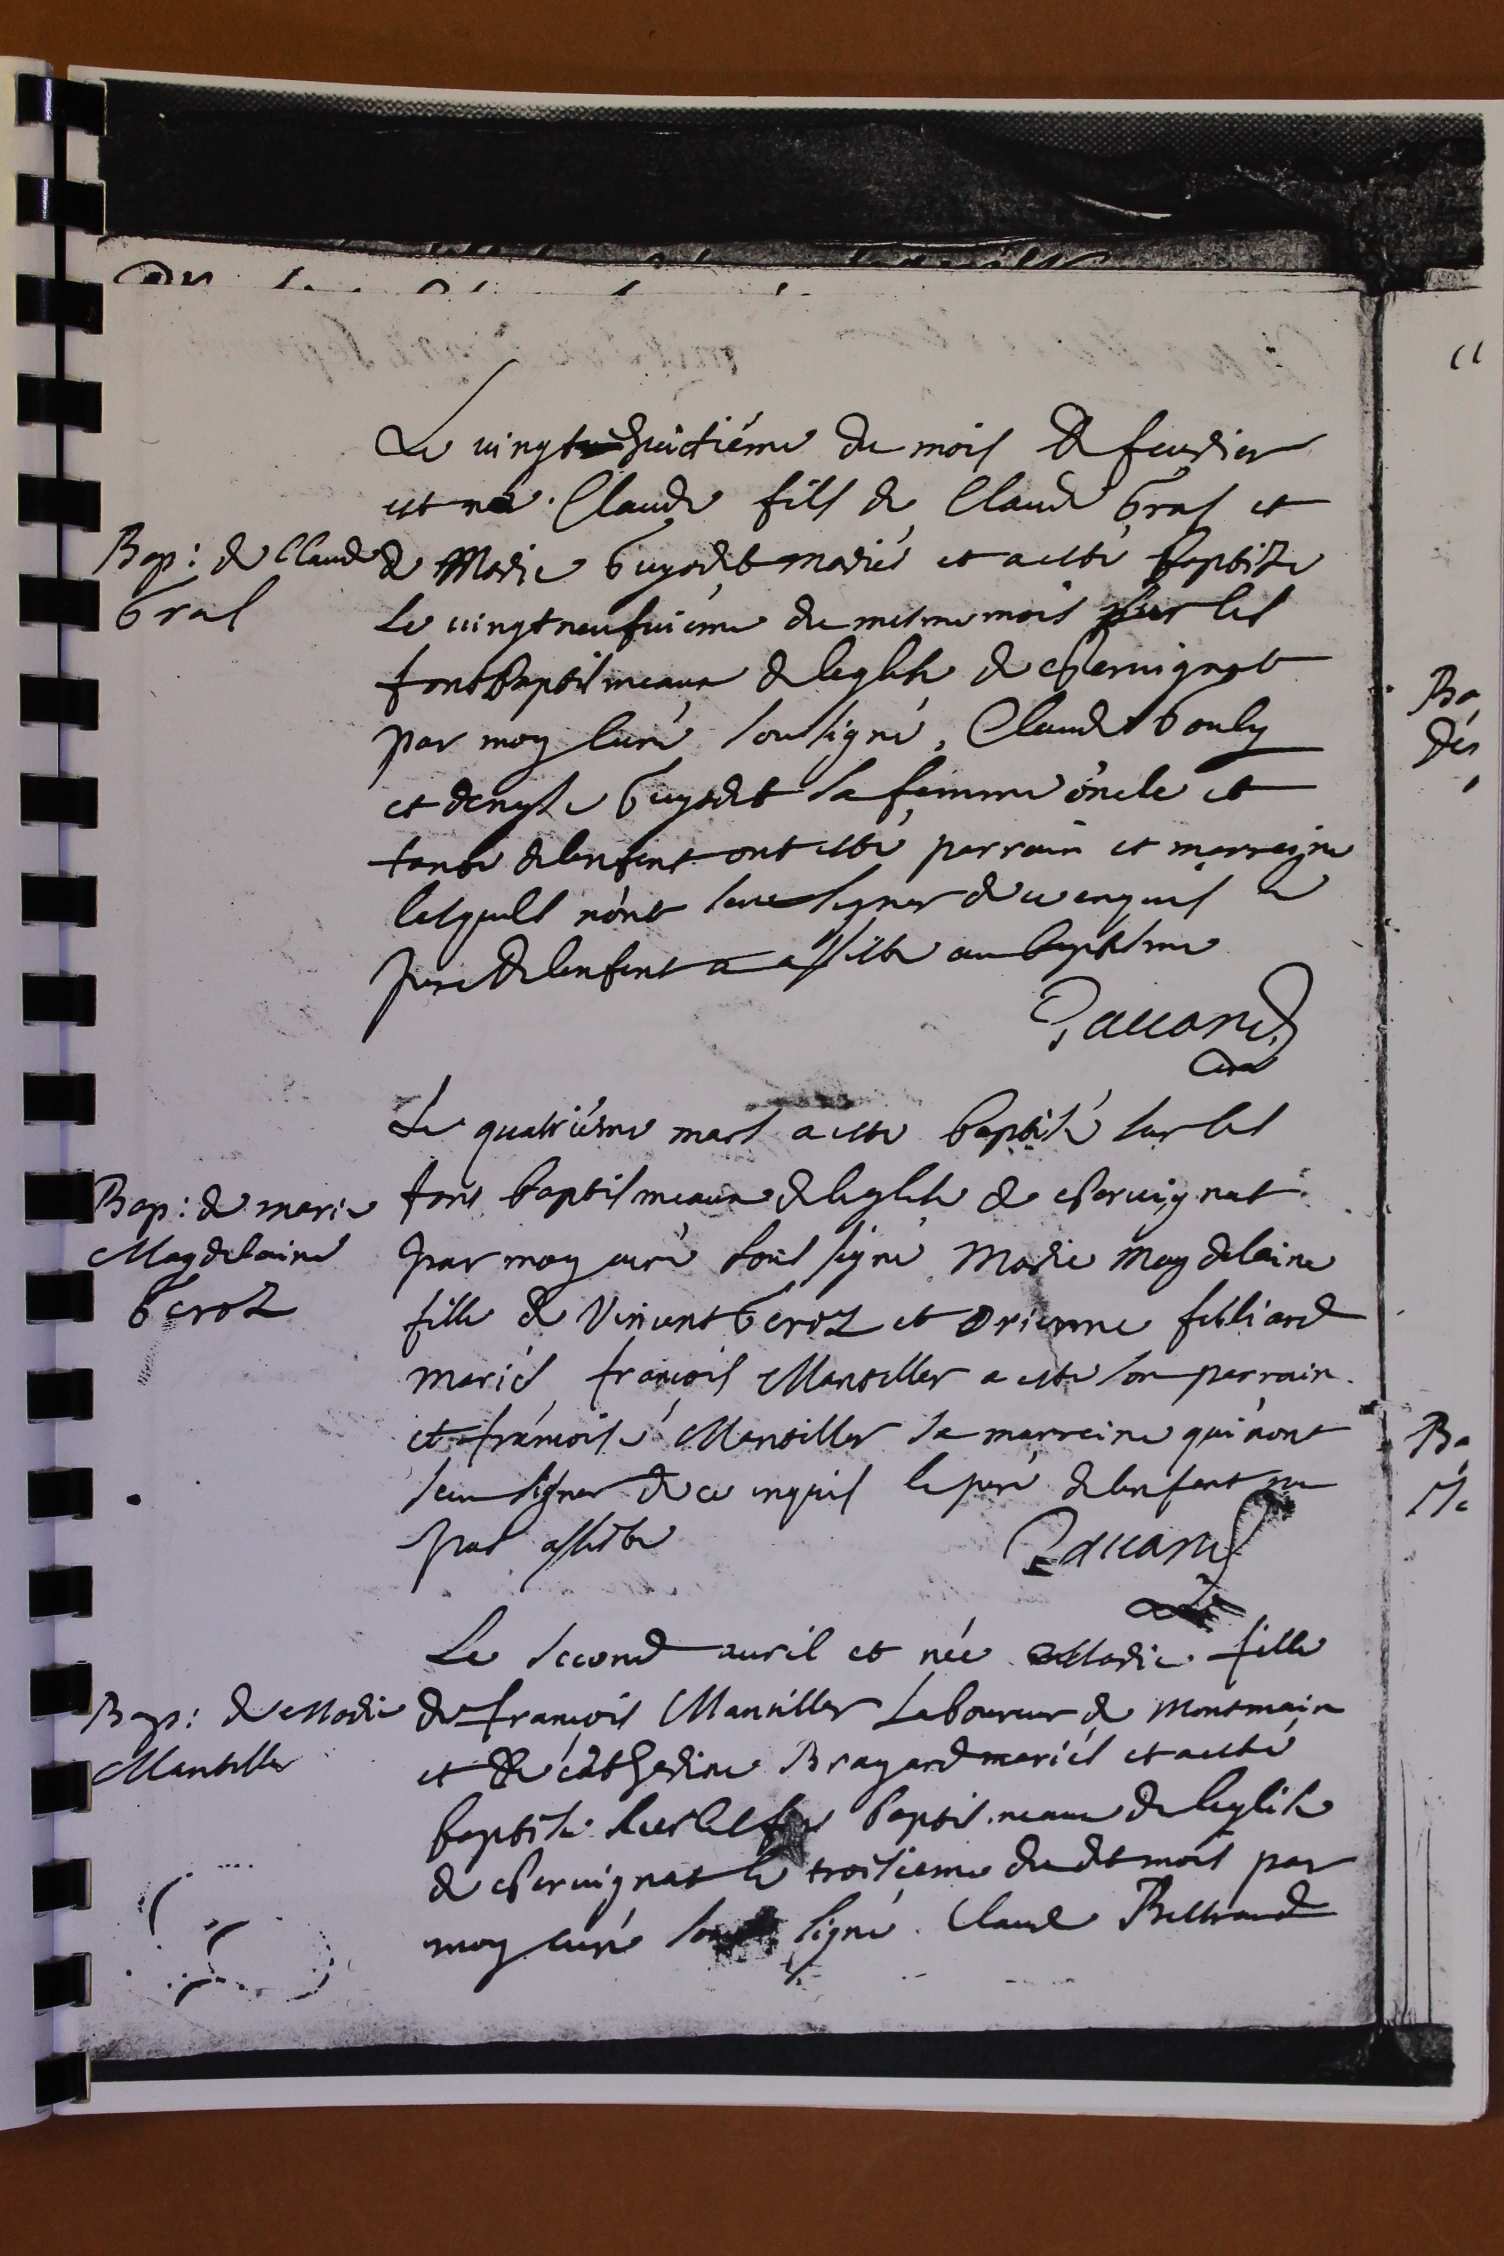 Le vingt huictiéme du mois de feurier
est né Claude fils de Claude Gras et
Bap: de Claude
Gras
de Marie Guyodet mariés et a esté baptisé
Le vingt neufuiéme du mesme mois sur les
fonts baptismeaux de leglise de cheruignat
par moy curé soussigné, Claude Gouly
et denyse Guyodet sa femme oncle et
tante de lenfent ont esté parrain et marreine
lesquels n'ont sceu signer de ce enquis le
pere de lenfent a assisté au baptesme
Paccand
curé
Le quatriéme mars a esté baptisé sur les
Bap: de marie
Magdelaine
Geroz
fons baptismeaux de leglise de cheruignat
par moy curé sous signé Marie Magdelaine
fille de Vincent Geroz et Drienne filliard
mariés, françois Mantiller a esté son parrain
et françoise Mantiller sa marreine qui nont
sceu signer de ce enquis le pere de lenfent na
pas assisté
Paccand
curé
Le second auril est née Marie fille
Bap: de Marie
Mantiller
de françois Mantiller Laboureur de Montmain
et de catherine Brayard mariés et a esté
baptisée sur les fons baptismeaux de leglise
de cheruignat le troisieme dudt mois par
moy curé sous signé. Claude Beltrand
Ba
Ba